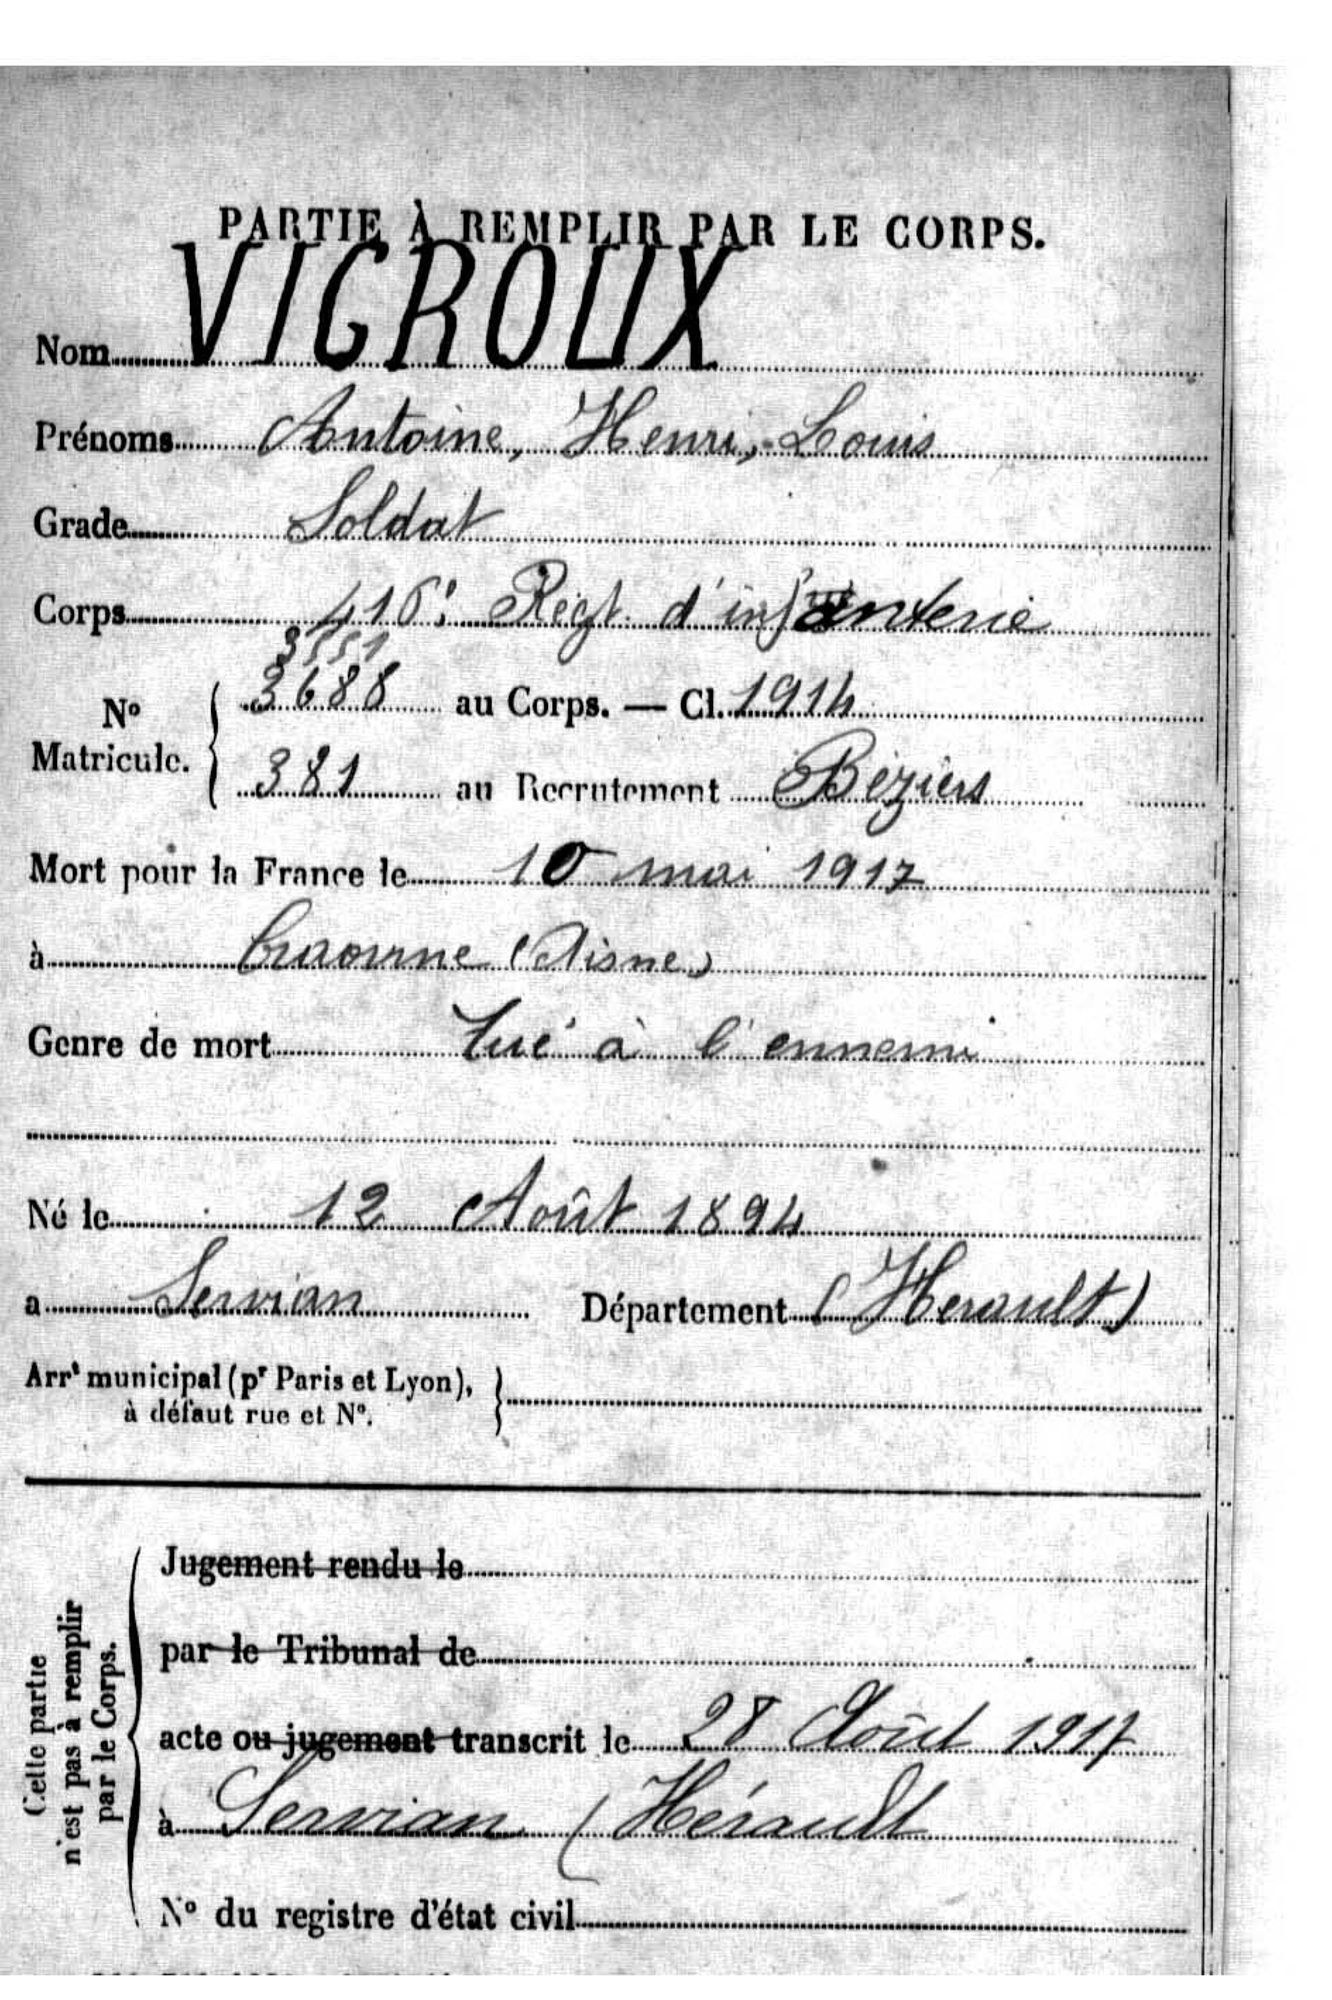 PARTIE À REMPLIR PAR LE CORPS.
Nom VIGROUX
Prénoms Antoine, Henri, Louis
Grade Soldat
Corps 416e Regt. d'infanterie
3551
N° Matricule. 3688 au Corps. — Cl. 1914
381 au Recrutement Béziers
Mort pour la France le 10 mai 1917
à Craonne (Aisne)
Genre de mort tué à l'ennemi
Né le 12 Août 1894
a Servian Département (Herault)
Arrt municipal (pr Paris et Lyon),
à défaut rue et N°.
Cette partie
n'est pas à remplir
par le Corps.
Jugement rendu le
par le Tribunal de
acte ou jugement transcrit le 28 Août 1917
à Servian (Hérault
N° du registre d'état civil